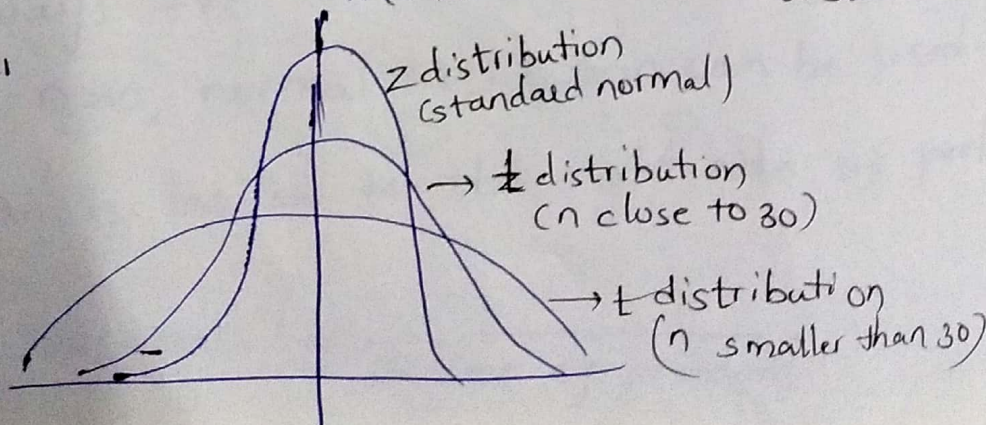 z distribution
(standaed normal)
→ t distribution
(n close to 30)
→ t distribution
(n smaller than 30)